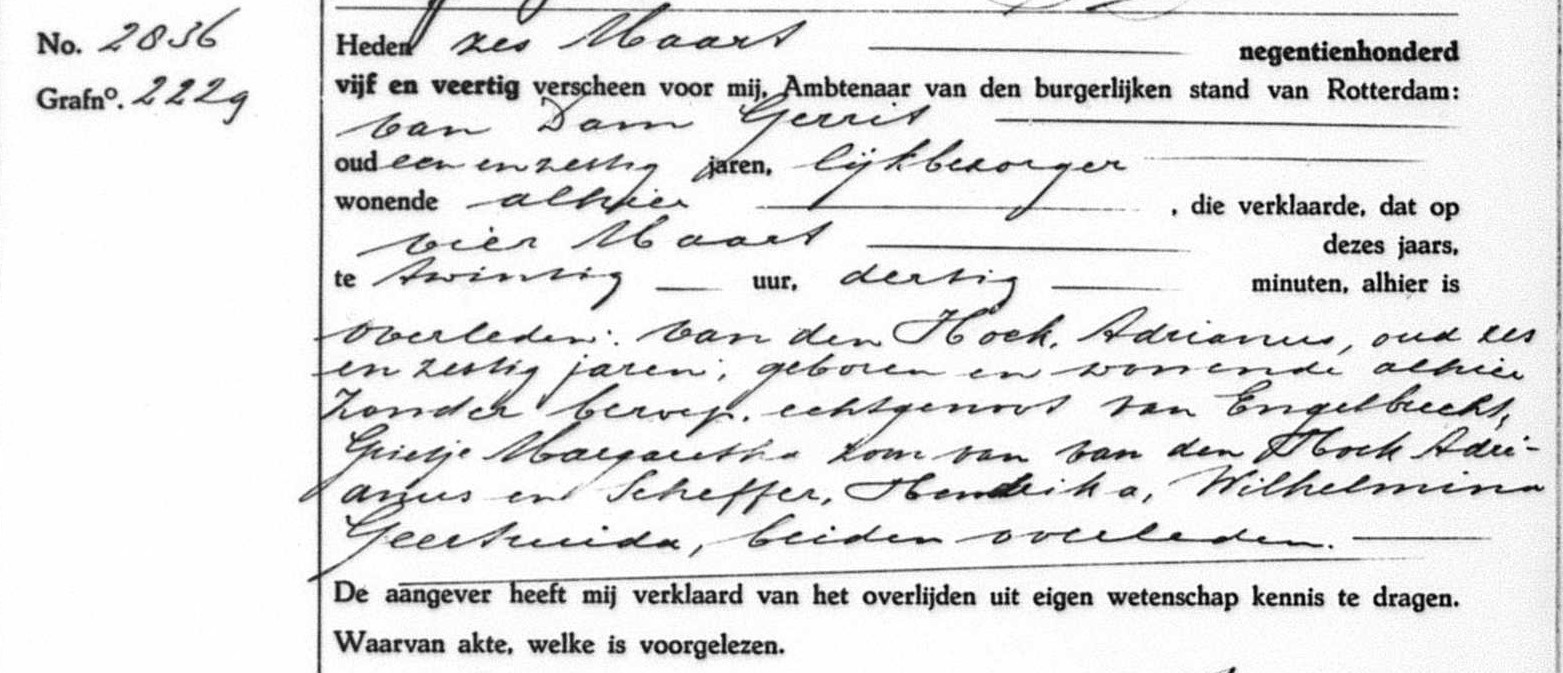 No. 2836
Grafno. 222g
Heden zes Maart negentienhonderd
vijf en veertig verscheen voor mij, Ambtenaar van den burgerlijken stand van Rotterdam:
van Dam Gerrit
oud een en zestig jaren, lijkbezorger
wonende alhier , die verklaarde, dat op
vier Maart dezes jaars,
te twintig uur, dertig minuten, alhier is
overleden: van den Hoek, Adrianus, oud zes
en zestig jaren, geboren en wonende alhier
zonder beroep, echtgenoot van Engelbrecht,
Grietje Margaretha zoon van van den Hoek Adri-
anus en Scheffer, Hendrika, Wilhelmina
Geertruida, beiden overleden.
De aangever heeft mij verklaard van het overlijden uit eigen wetenschap kennis te dragen.
Waarvan akte, welke is voorgelezen.